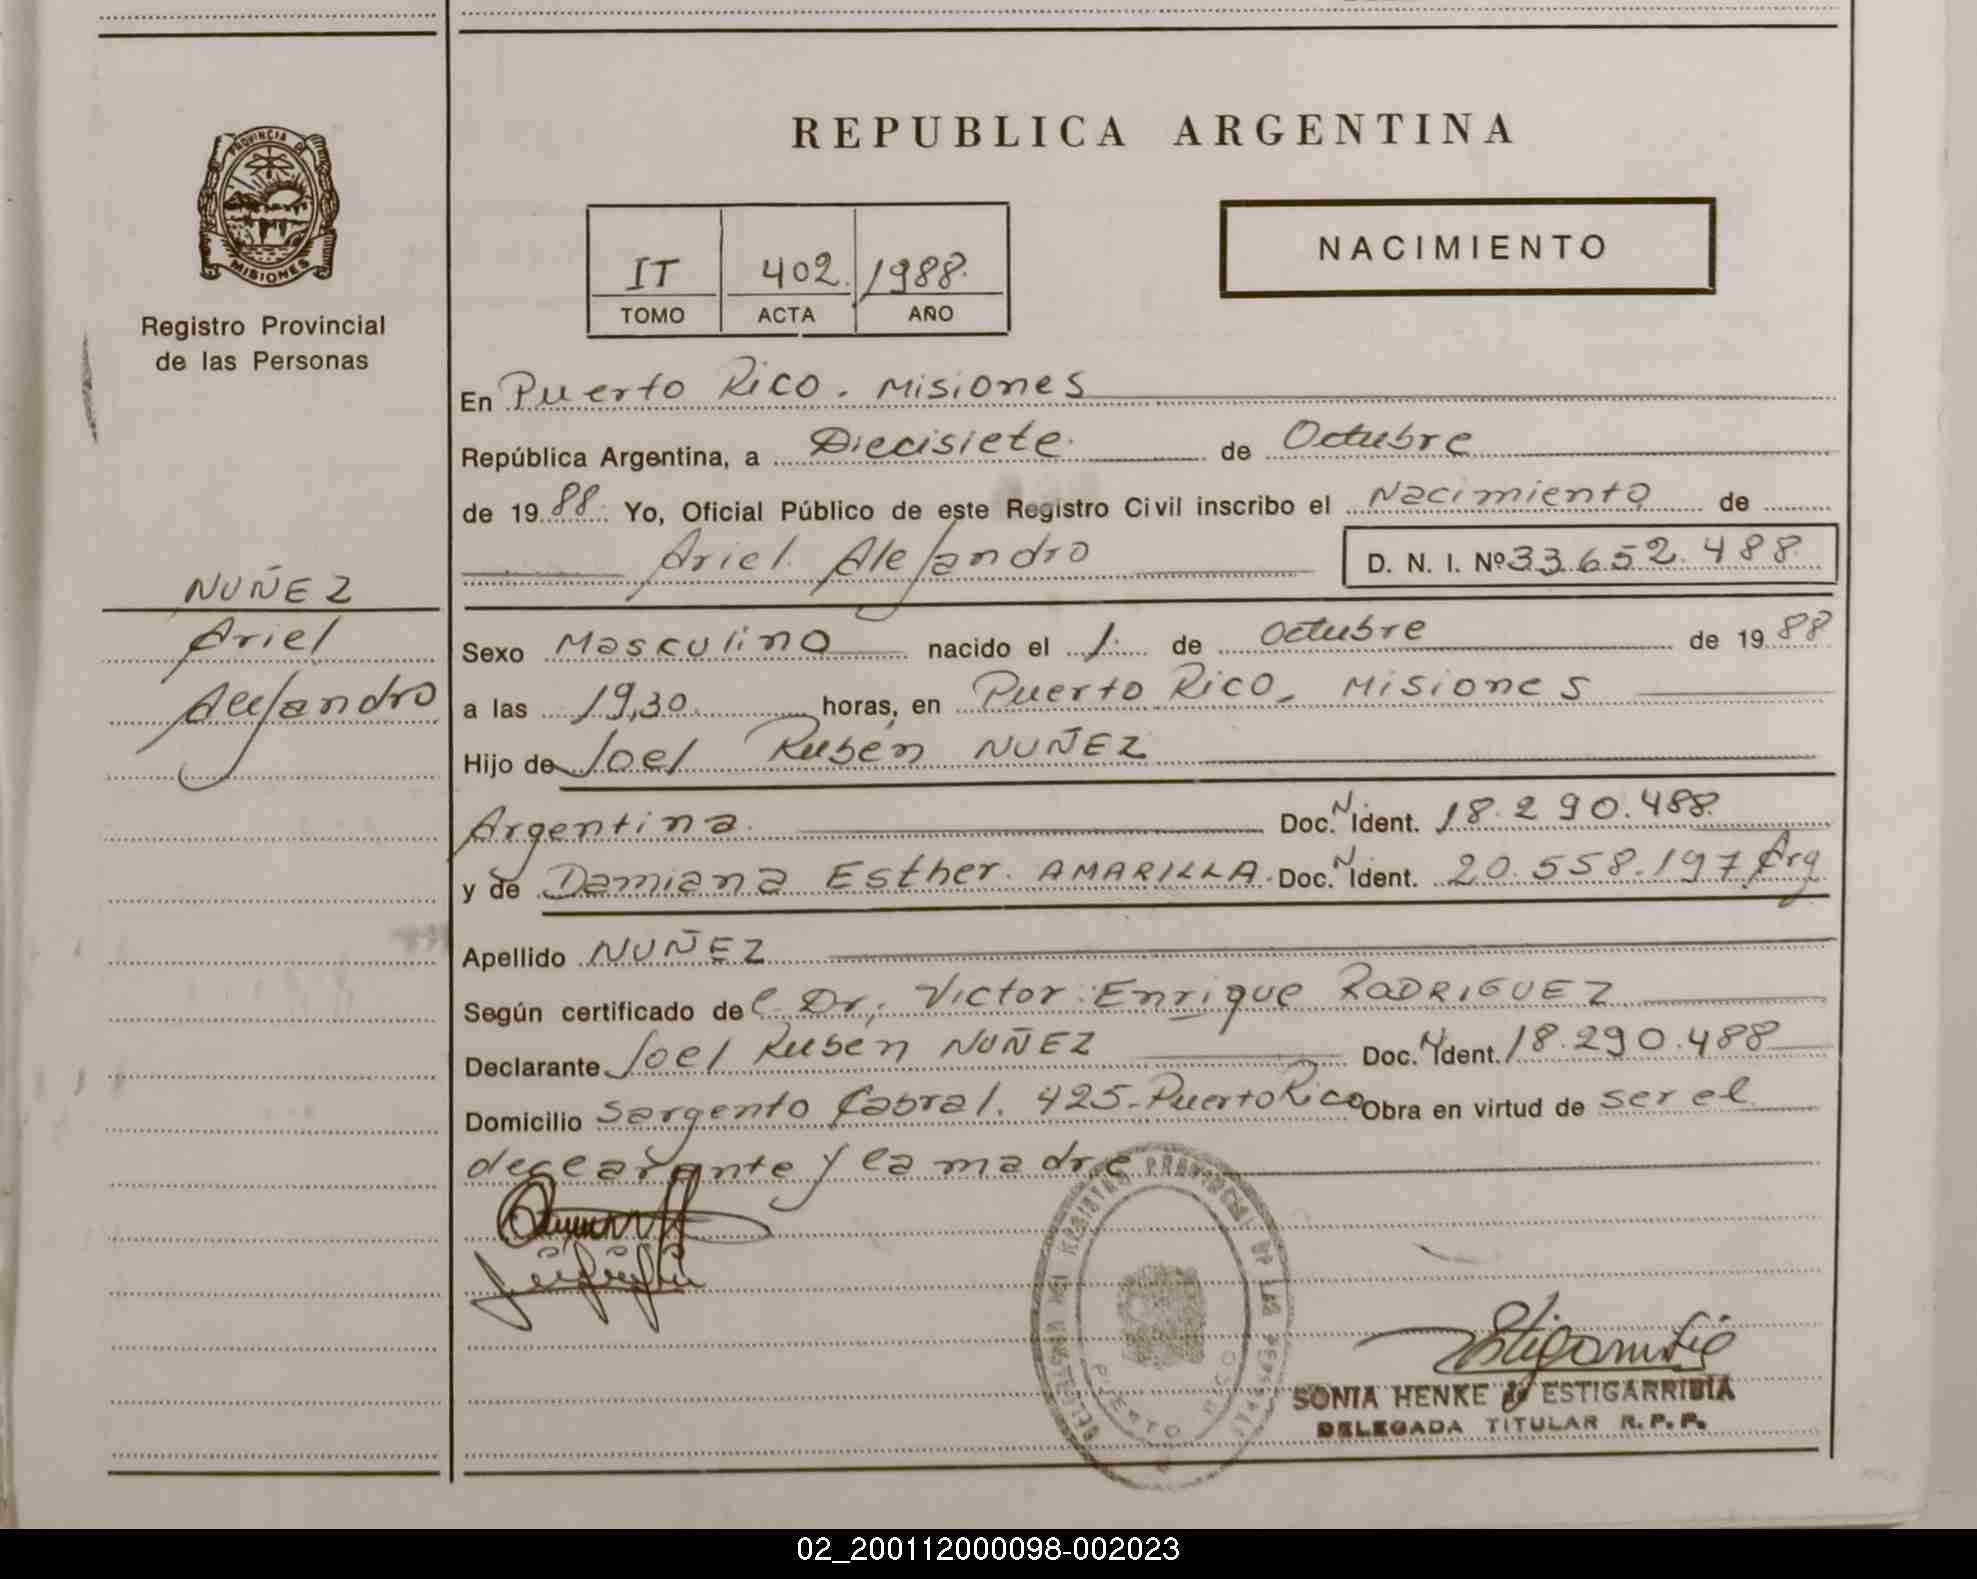 PROVINCIA DE
MISIONES
Registro Provincial
de las Personas
NUÑEZ
Ariel
Alejandro
REPUBLICA ARGENTINA
IT 402. 1988.
TOMO ACTA AÑO
NACIMIENTO
En Puerto Rico. Misiones
República Argentina, a Diecisiete de Octubre
de 1988. Yo, Oficial Público de este Registro Civil inscribo el Nacimiento de
Ariel Alejandro D. N. I. Nº 33.652.488
Sexo Masculino nacido el 1. de Octubre de 1988
a las 19,30 horas, en Puerto Rico, Misiones
Hijo de Joel Rubén NUÑEZ
Argentina. Doc. N Ident. 18.290.488.
y de Damiana Esther. AMARILLA. Doc. N Ident. 20.558.197 Arg
Apellido NUÑEZ
Según certificado del Dr. Victor Enrique RODRIGUEZ
Declarante Joel Ruben NUÑEZ Doc. N Ident. 18.290.488
Domicilio Sargento Cabral. 425-Puerto Rico Obra en virtud de ser el
declarante y la madre
REGISTRO PROVINCIAL DE LAS PERSONAS
PUERTO RICO
SONIA HENKE de ESTIGARRIBIA
DELEGADA TITULAR R.P.P.
02_200112000098-002023